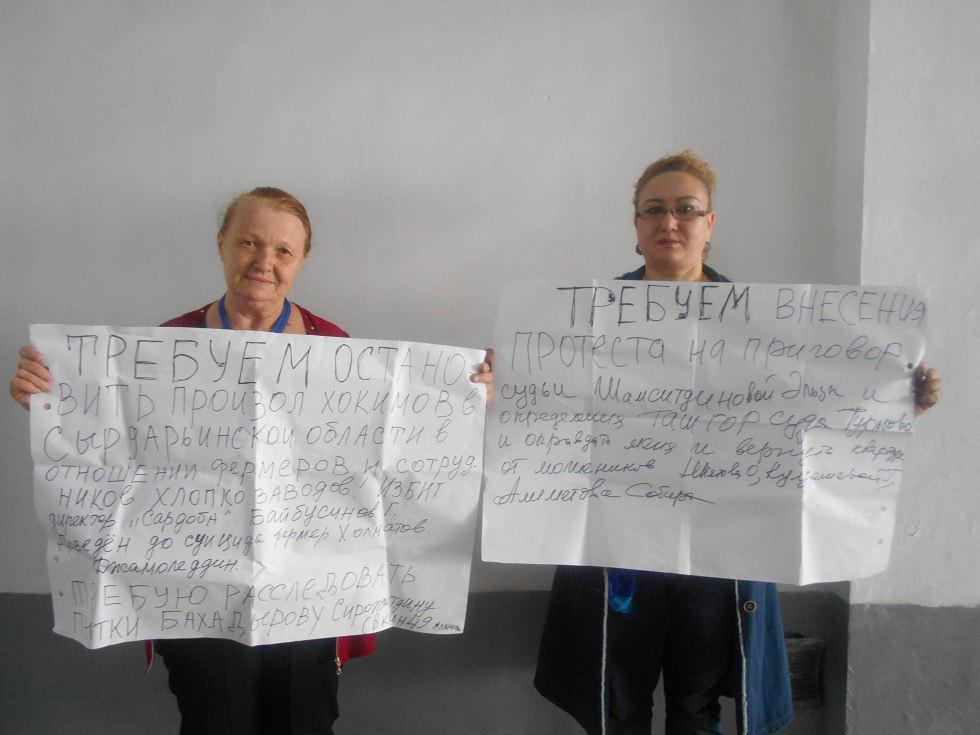 ТРЕБУЕМ ОСТАНО
ВИТЬ ПРОИЗОЛ ХОКИМОВ В
СЫРДАРЬИНСКОЙ ОБЛАСТИ В
ОТНОШЕНИИ ФЕРМЕРОВ, И СОТРУД
НИКОВ ХЛОПКОЗАВОДОВ, ИЗБИТ
директор „Сардоба" Байбусинов Г.
до суицида фермер Холматов
Джамоледдин.
ТРЕБУЮ РАССЛЕДОВАТЬ
ПЫТКИ БАХАДЫРОВУ
ТРЕБУЕМ ВНЕСЕНИЯ
ПРОТЕСТА НА ПРИГОВОР
судьи Шамситдиновой Эльзы и
ТАШГОР суда
и оправдать меня и вернуть
от мошенников
Аметова